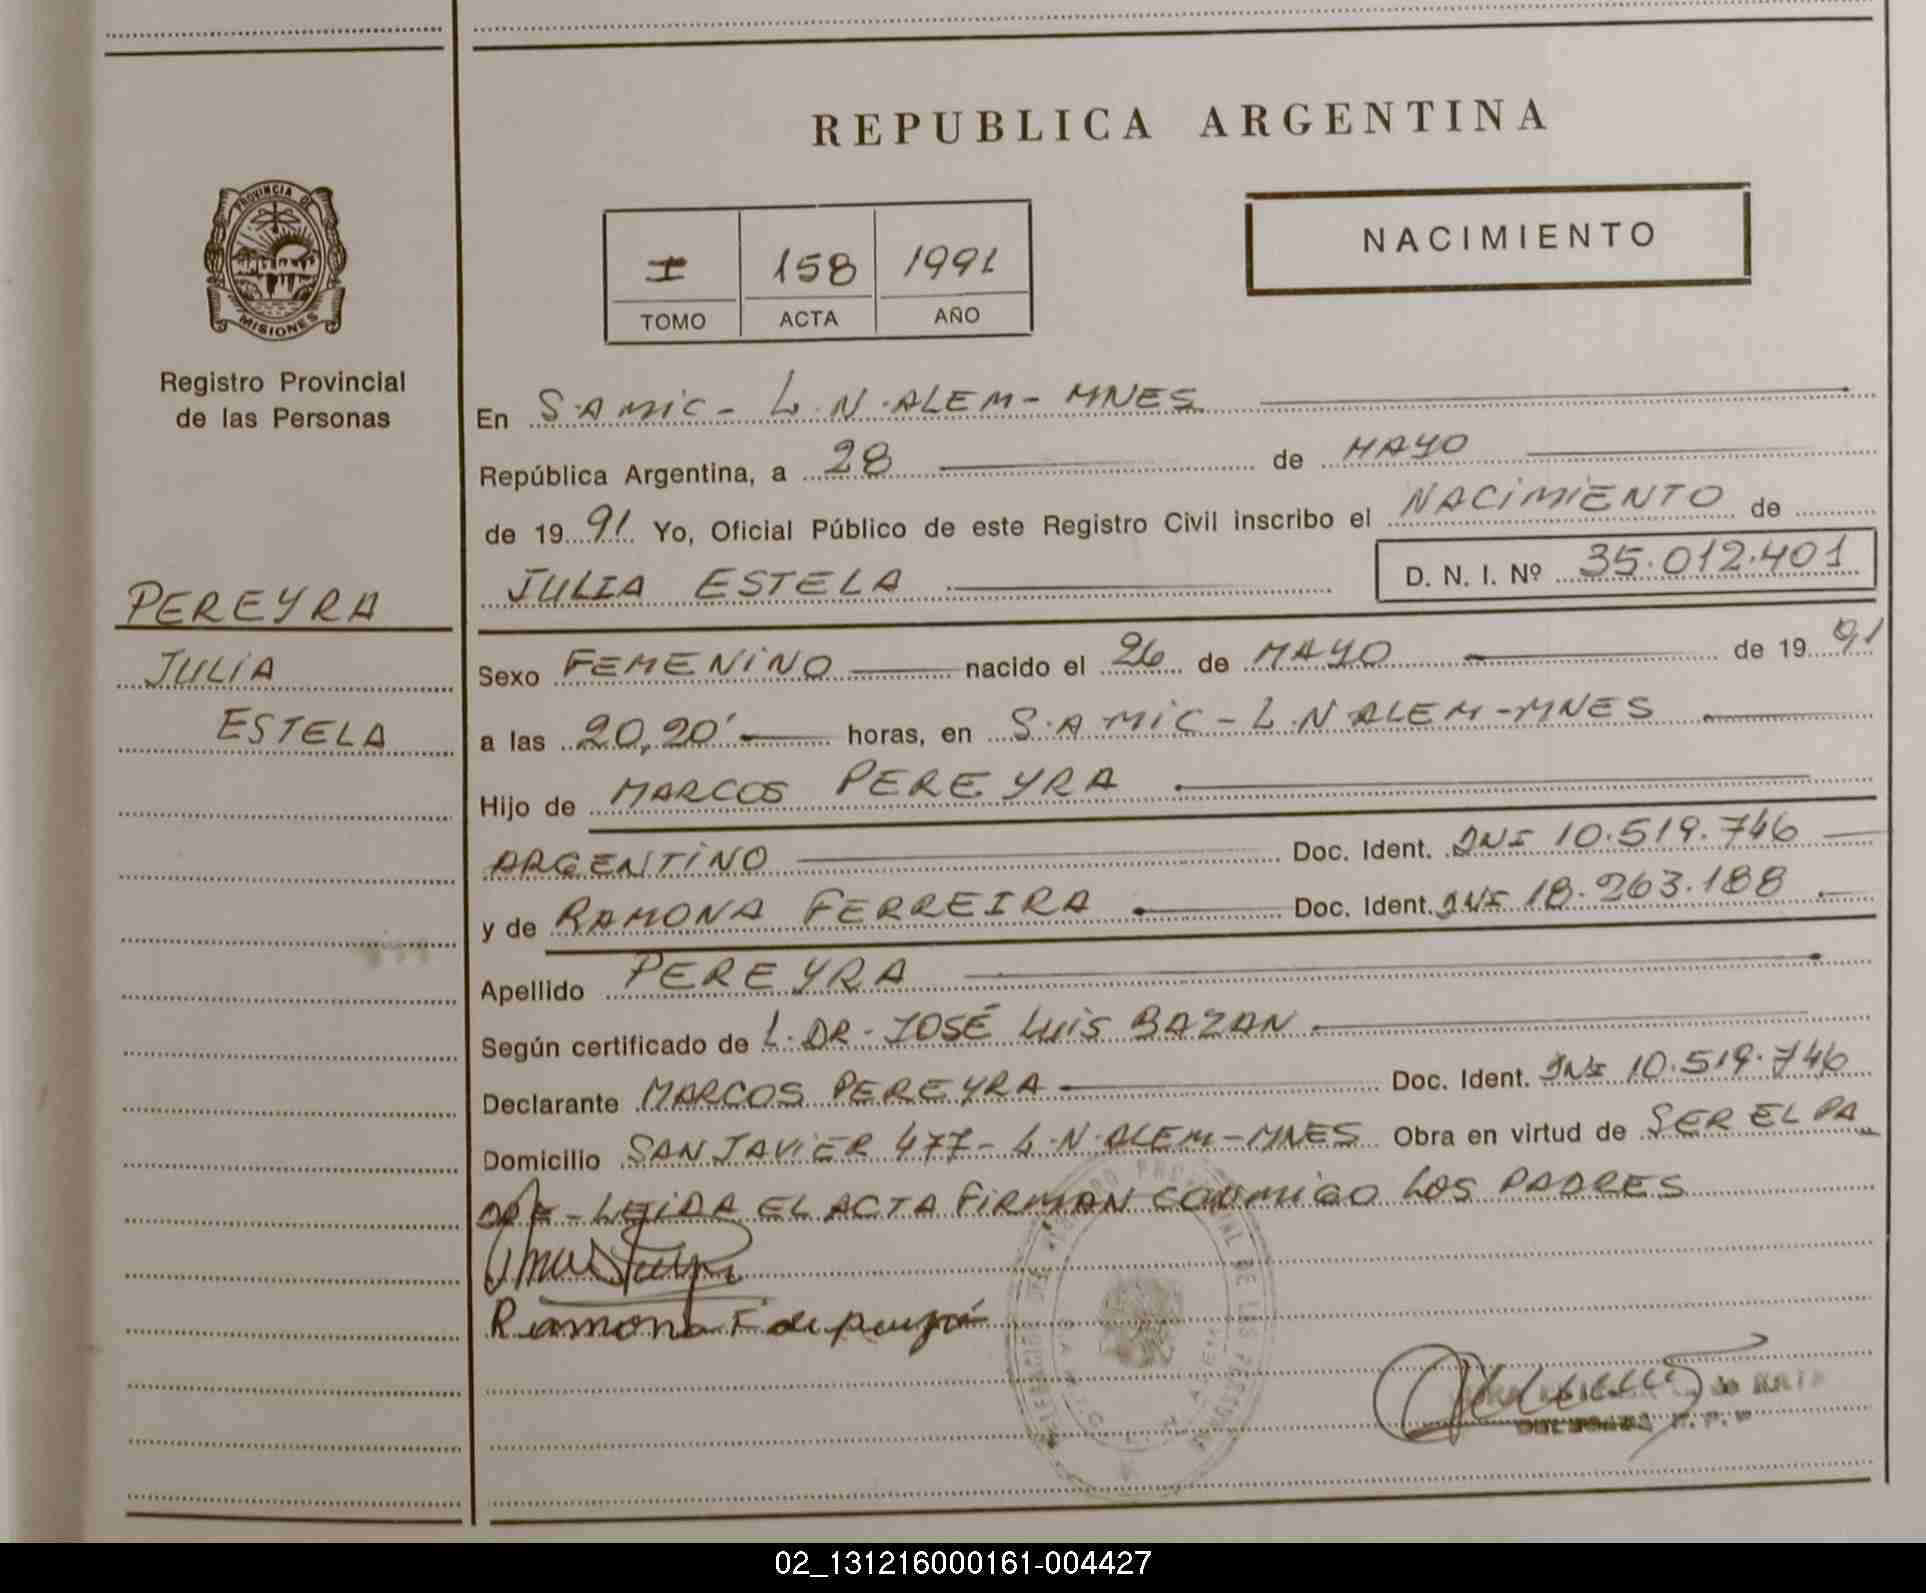 REPUBLICA ARGENTINA
PROVINCIA DE
MISIONES
Registro Provincial
de las Personas
PEREYRA
JULIA
ESTELA
I 158 1991
TOMO ACTA AÑO
NACIMIENTO
En S.A MIC - L.N.ALEM - MNES
República Argentina, a 28 de MAYO
de 19 91 Yo, Oficial Público de este Registro Civil inscribo el NACIMIENTO de
JULIA ESTELA D. N. I. Nº 35.012.401
Sexo FEMENINO nacido el 26 de MAYO de 19 91
a las 20,20' horas, en S.A MIC - L.N ALEM - MNES
Hijo de MARCOS PEREYRA
ARGENTINO Doc. Ident. DNI 10.519.746
y de RAMONA FERREIRA Doc. Ident. DNI 18.263.188
Apellido PEREYRA
Según certificado de L. DR. JOSÉ LUIS BAZAN
Declarante MARCOS PEREYRA Doc. Ident. DNI 10.519.746
Domicilio SAN JAVIER 477 - L.N.ALEM - MNES Obra en virtud de SER EL PA
DRE - LEIDA EL ACTA FIRMAN CONMIGO LOS PADRES
Ramona F de
02_131216000161-004427